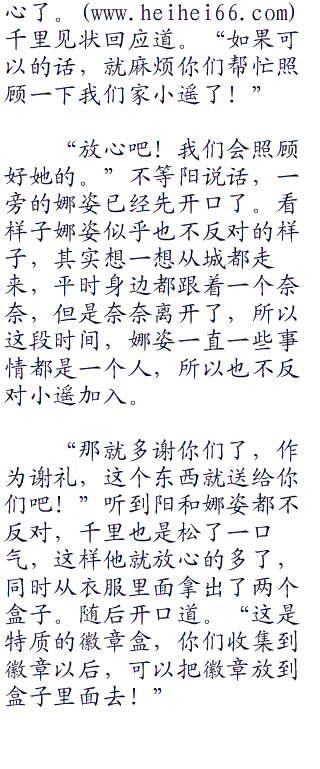 心了。(www.heihei66.com)
千里见状回应道。“如果可
以的话，就麻烦你们帮忙照
顾一下我们家小遥了！”
“放心吧！我们会照顾
好她的。”不等阳说话，一
旁的娜姿已经先开口了。看
样子娜姿似乎也不反对的样
子，其实想一想从城都走
来，平时身边都跟着一个奈
奈，但是奈奈离开了，所以
这段时间，娜姿一直一些事
情都是一个人，所以也不反
对小遥加入。
“那就多谢你们了，作
为谢礼，这个东西就送给你
们吧！”听到阳和娜姿都不
反对，千里也是松了一口
气，这样他就放心的多了，
同时从衣服里面拿出了两个
盒子。随后开口道。“这是
特质的徽章盒，你们收集到
徽章以后，可以把徽章放到
盒子里面去！”